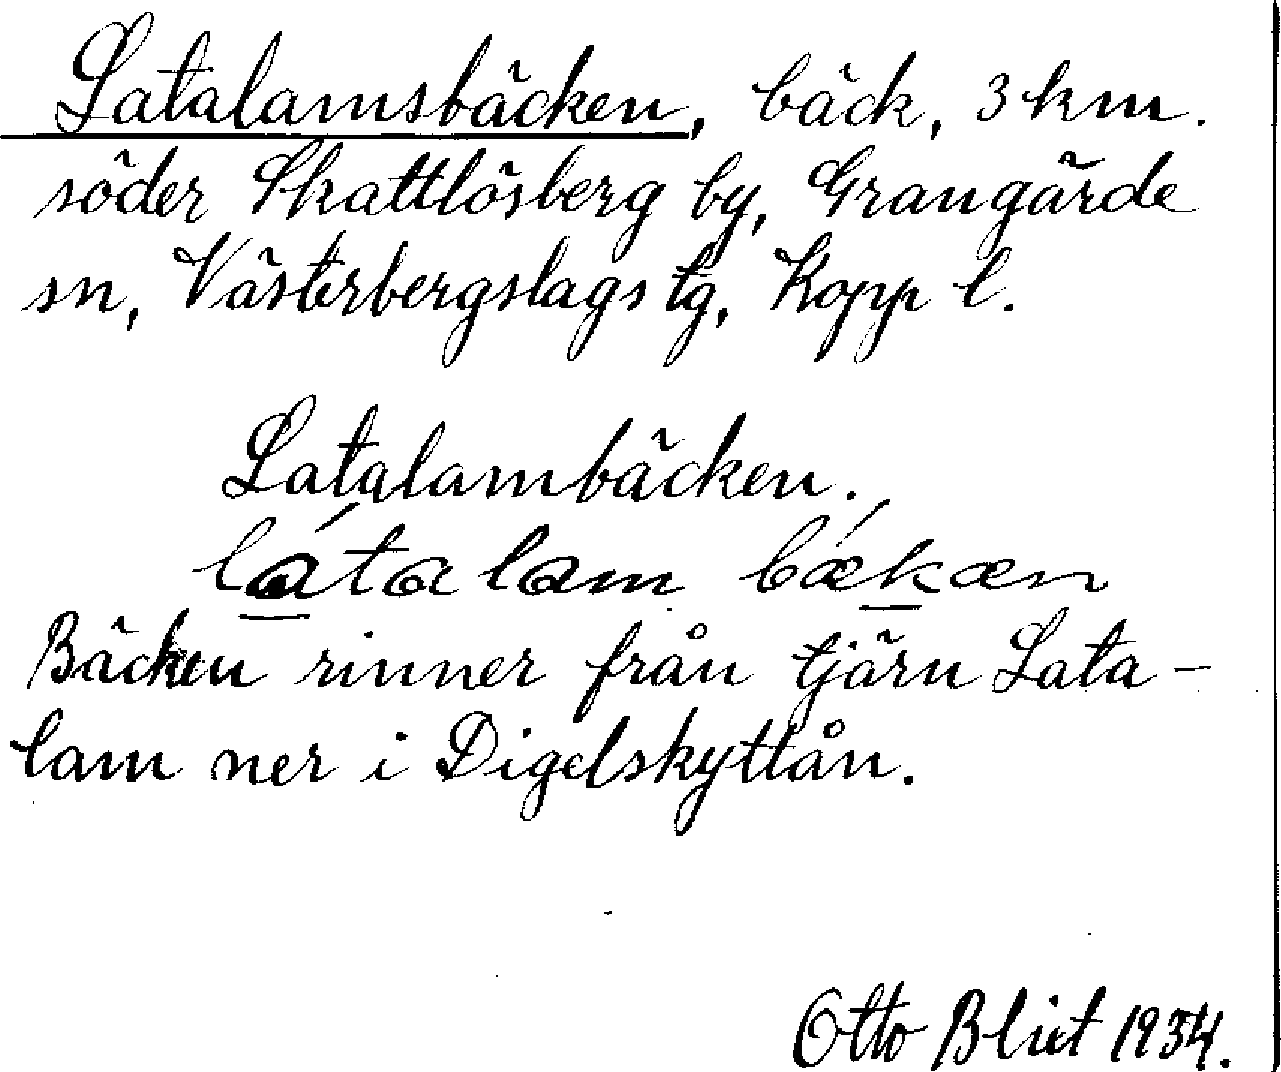 Latalamsbäcken, bäck, 3 km.
söder Skattlösberg by, Grangärde
sn, Västerbergslags tg, Kopp l.
Latalambäcken.
látalam bǽkæn
Bäcken rinner från tjärn Lata-
lam ner i Digelskyttån.
Otto Blixt 1934.